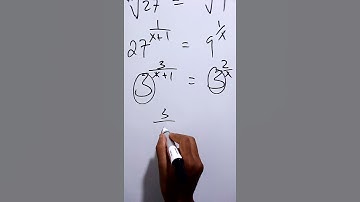 √27 = √
27^(1/(x+1)) = 9^(1/x)
3^(3/(x+1)) = 3^(2/x)
3